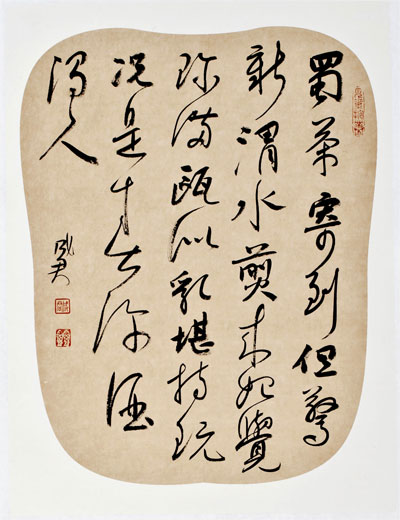 蜀茶寄到但驚
新渭水煎來始覺
珍滿甌似乳堪持玩
況是春深酒
渴人